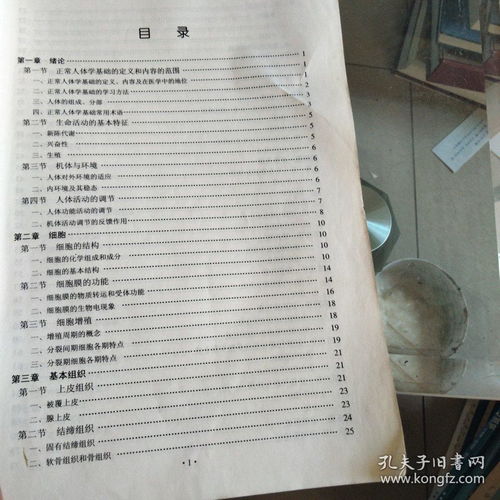 目 录
第一章 绪论 1
第一节 正常人体学基础的定义和内容的范围 1
一、正常人体学基础的定义、内容及在医学中的地位 1
二、正常人体学基础的学习方法 2
三、人体的组成、分部 3
四、正常人体学基础常用术语 3
第二节 生命活动的基本特征 5
一、新陈代谢 5
二、兴奋性 5
三、生殖 6
第三节 机体与环境 6
一、人体对外环境的适应 6
二、内环境及其稳态 6
第四节 人体活动的调节 7
一、人体功能活动的调节 7
二、机体活动调节的反馈作用 8
第二章 细胞 10
第一节 细胞的结构 10
一、细胞的化学组成和成分 10
二、细胞的基本结构 10
第二节 细胞膜的功能 14
一、细胞膜的物质转运和受体功能 14
二、细胞膜的生物电现象 16
第三节 细胞增殖 18
一、增殖周期的概念 18
二、分裂间期细胞各期特点 19
三、分裂期细胞各期特点 19
第三章 基本组织 21
第一节 上皮组织 21
一、被覆上皮 21
二、腺上皮 23
第二节 结缔组织 24
一、固有结缔组织 24
二、软骨组织和骨组织 25
·1·
孔夫子旧书网
www.kongfz.com